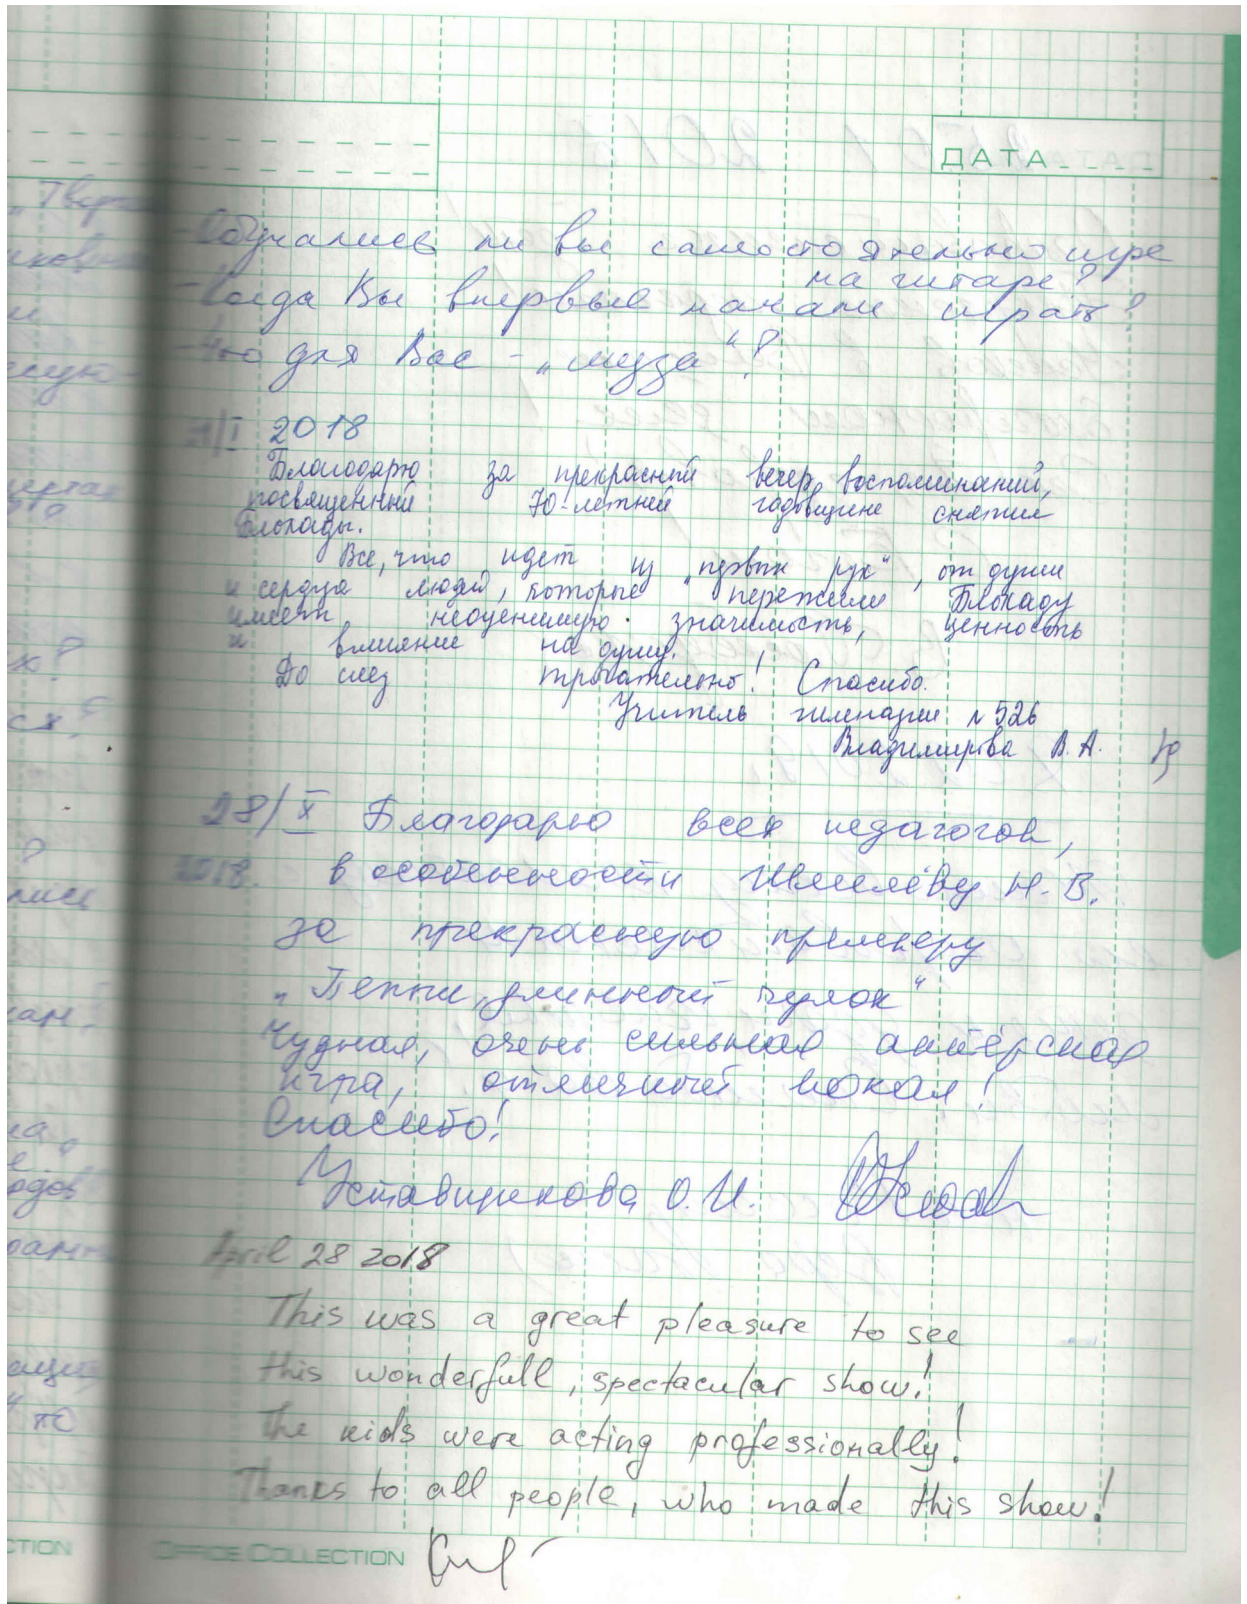 ДАТА
- Обучались ли вы самостоятельно игре
на гитаре?
- Когда Вы впервые начали играть?
- Что для Вас - „муза“?
1/I 2018
Благодарю за прекрасный вечер воспоминаний,
посвященный 70-летней годовщине снятия
Блокады.
Все, что идет из „первых рук“, от души
и сердца людей, которые пережили Блокаду
имеет неоценимую значимость, ценность
и влияние на душу.
До слез трогательно! Спасибо.
Учитель гимназии №526
Владимирова В.А.
28/X Благодарю всех педагогов,
2018. в особенности Шмелёву Н.В.
за прекрасную премьеру
„Пеппи, длинный чулок“
Чудная, очень сильная актёрская
игра, отличный вокал!
Спасибо!
Уставщикова О.И.
April 28 2018
This was a great pleasure to see
this wonderfull, spectacular show!
The kids were acting professionally!
Thanks to all people, who made this show!
OFFICE COLLECTION